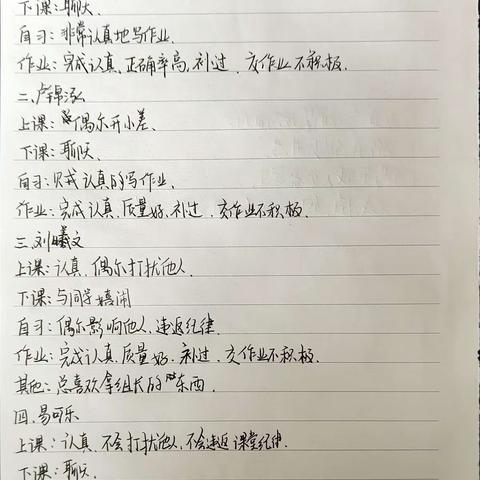 下课：聊天
自习：非常认真地写作业、
作业：完成认真、正确率高、补过、交作业不积极、
二、卢锦泓
上课：偶尔开小差、
下课：聊天、
自习：认真的写作业、
作业：完成认真、质量好、补过、交作业不积极、
三、刘曦文
上课：认真、偶尔打扰他人、
下课：与同学嬉闹
自习：偶尔影响他人、违返纪律、
作业：完成认真、质量好、补过、交作业不积极、
其他：总喜欢拿组长的东西、
四、易可乐
上课：认真、不会打扰他人、不会违返课堂纪律、
下课：聊天、